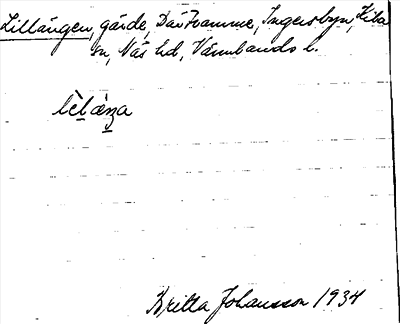 Lillängen, gärde, Där hemme, Ingersbyn, Kila
sn, Näs hd, Värmlands l.
lèlæŋa
Britta Johansson 1934